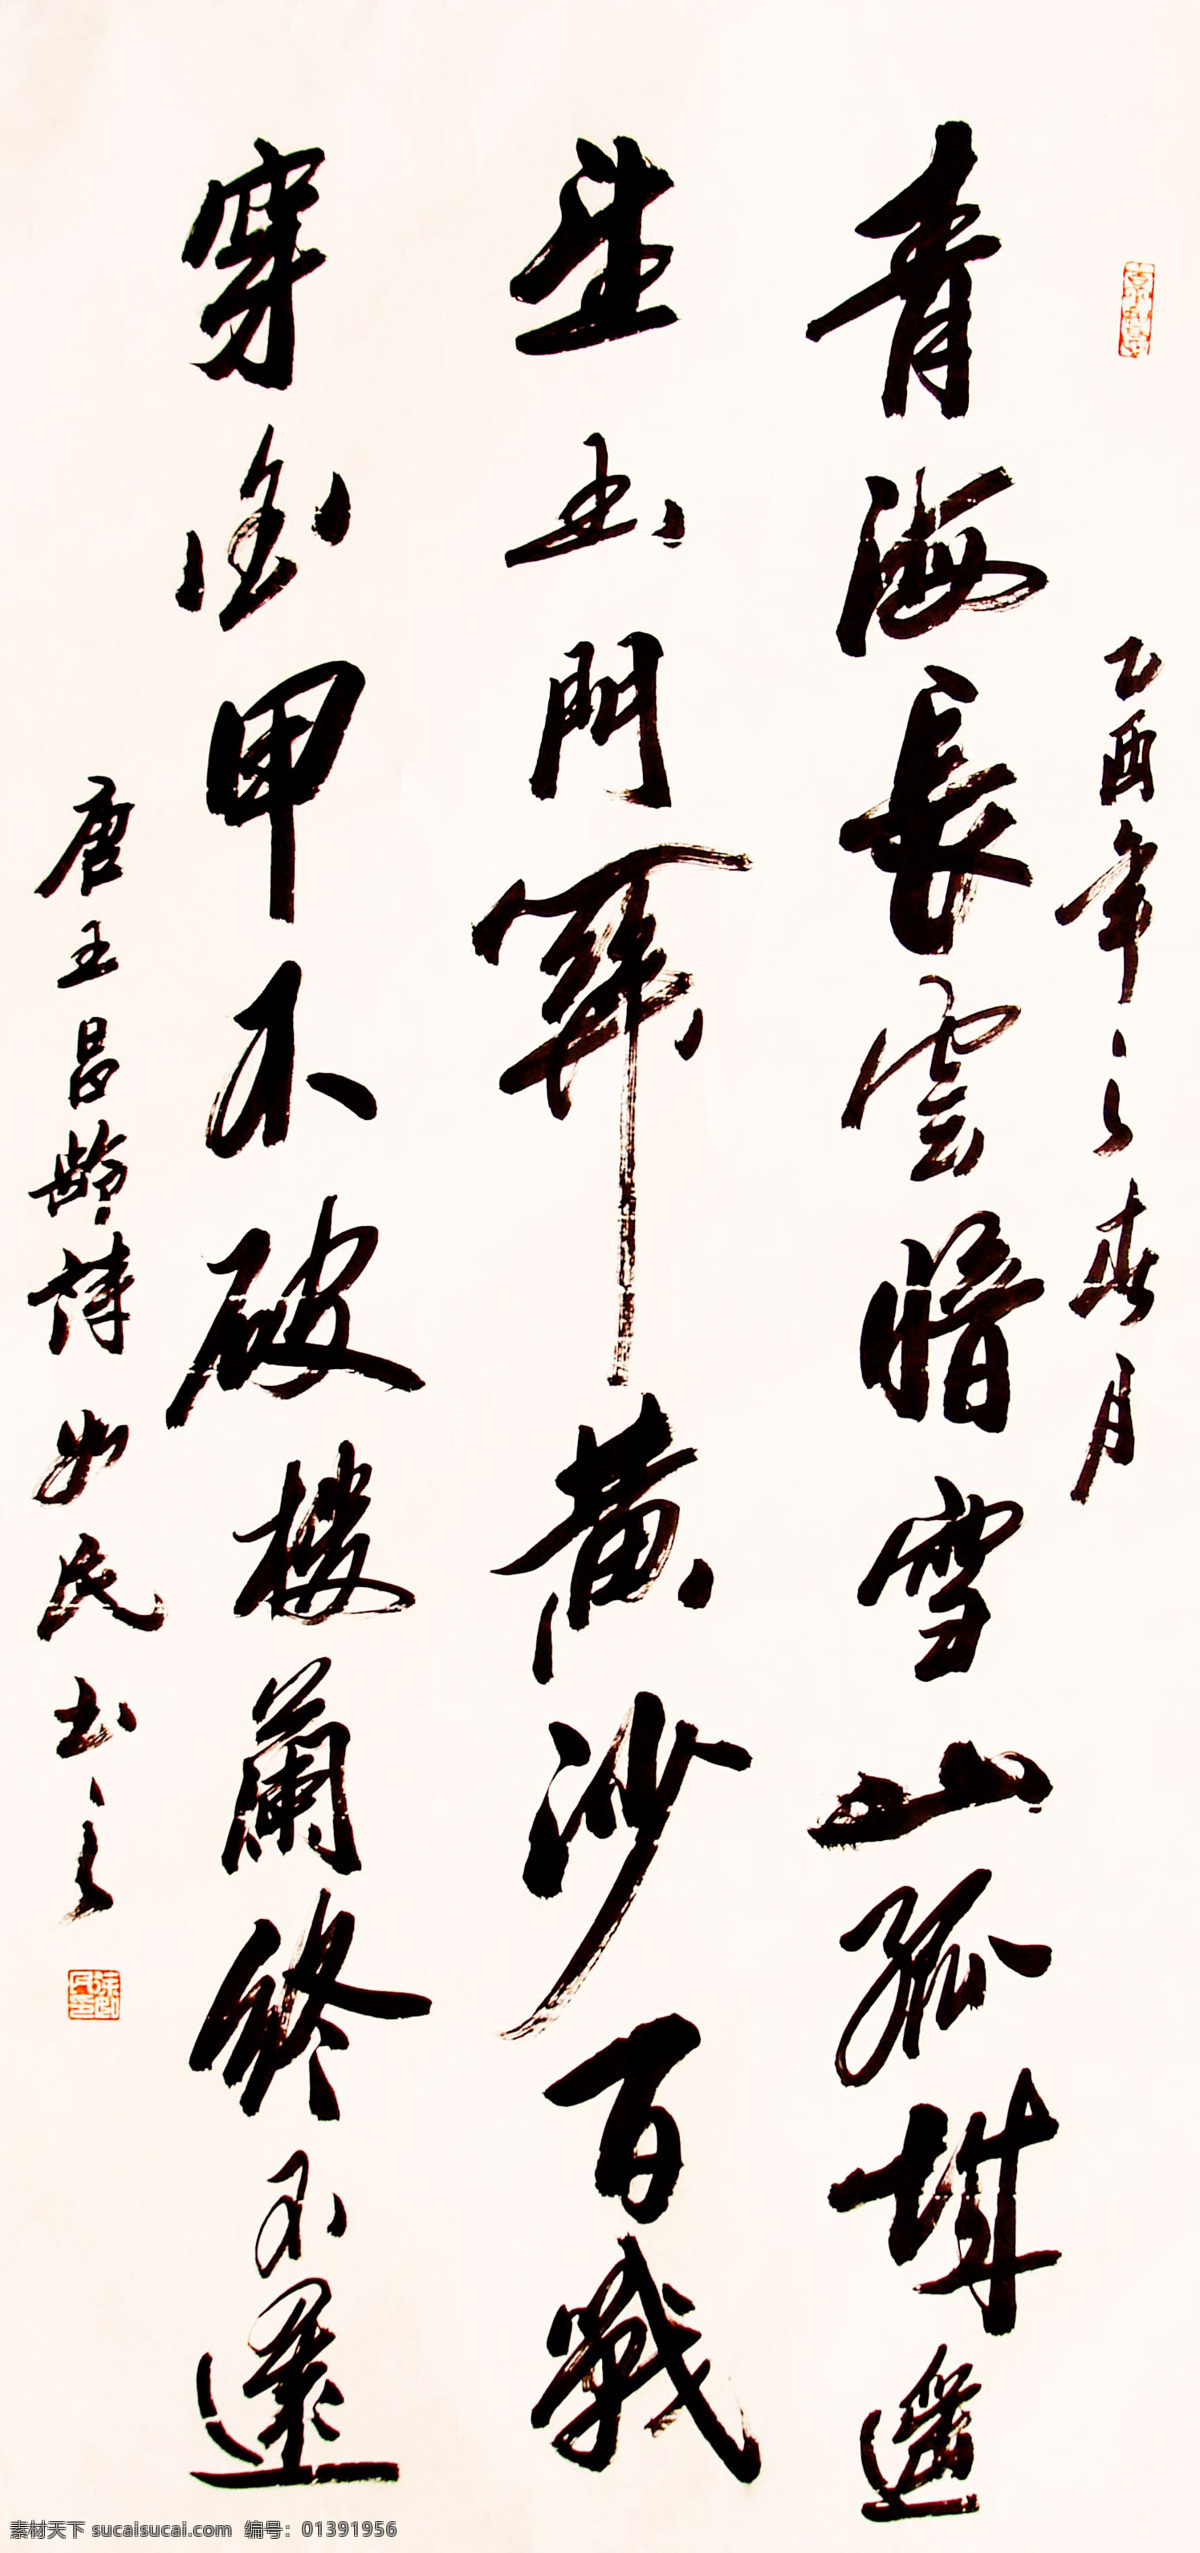 乙酉年之春月
青海長雲暗雪山孤城遙
望玉門關黃沙百戰
穿金甲不破樓蘭終不還
唐王昌齡詩如民書之
素材天下 sucaisucai.com 编号：01391956